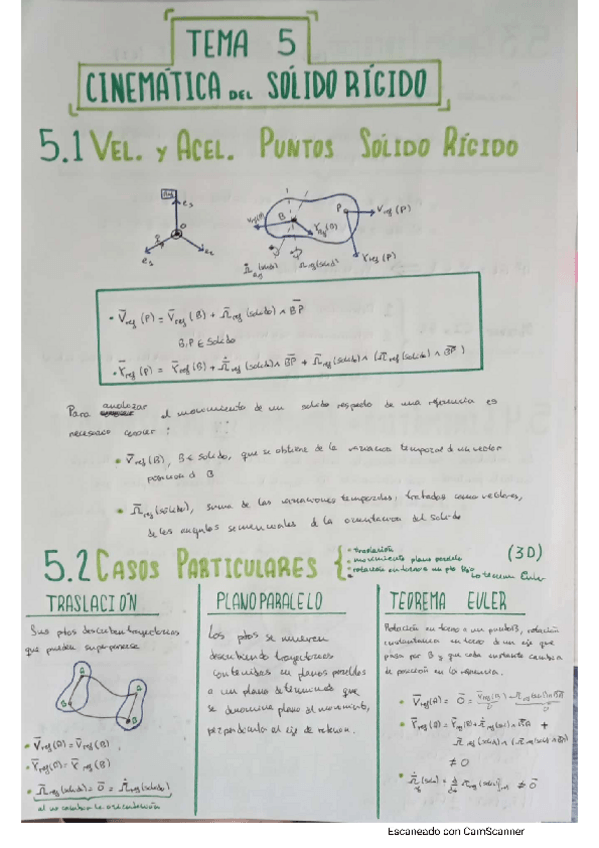 TEMA 5
CINEMÁTICA DEL SÓLIDO RÍGIDO
5.1 VEL. Y ACEL. PUNTOS SÓLIDO RÍGIDO
e₃
O
e₁
e₂
B
P
V̄ref (P)
γref (P)
γref (B)
• V̄ref (P) = V̄ref (B) + Ω̄ref (solido) ∧ B̄P̄
B,P ∈ Solido
• γ̄ref (P) = γ̄ref (B) + Ω̄̇ref (solido) ∧ B̄P̄ + Ω̄ref (solido) ∧ (Ω̄ref (solido) ∧ B̄P̄)
Para analizar el movimiento de un solido respecto de una referencia es
necesario conocer:
• V̄ref (B), B ∈ Solido, que se obtiene de la variación temporal d un vector
posición d B
• Ω̄ref (solido), suma de las variaciones temporales, tratadas como vectores,
de los angulos d la orientación del solido
5.2 CASOS PARTICULARES { • traslación (3D)
• movimiento plano paralelo
• rotación en torno a un pto fijo
↳ teorema Euler
TRASLACIÓN
Sus ptos describen trayectorias
que pueden superponerse
• V̄ref (A) = V̄ref (B)
• γ̄ref (A) = γ̄ref (B)
• Ω̄ref (solido) = 0̄ = Ω̄̇ref (solido)
al no cambiar la orientación
PLANO PARALELO
Los ptos se mueven
describiendo trayectorias
contenidas en planos paralelos
a un plano determinado que
se denomina plano del movimiento,
perpendicular al eje de rotacion.
TEOREMA EULER
Rotación en torno a un punto B, rotación
instantanea en torno de un eje que
pasa por B y que cada instante cambia
de posición en la referencia.
• V̄ref (A) =
• γ̄ref (A) = γ̄ref (B) + Ω̄̇ref (solido) ∧ B̄Ā +
Ω̄ref (solido) ∧ (Ω̄ref (solido) ∧ B̄Ā)
≠ 0
≠ 0̄
Escaneado con CamScanner